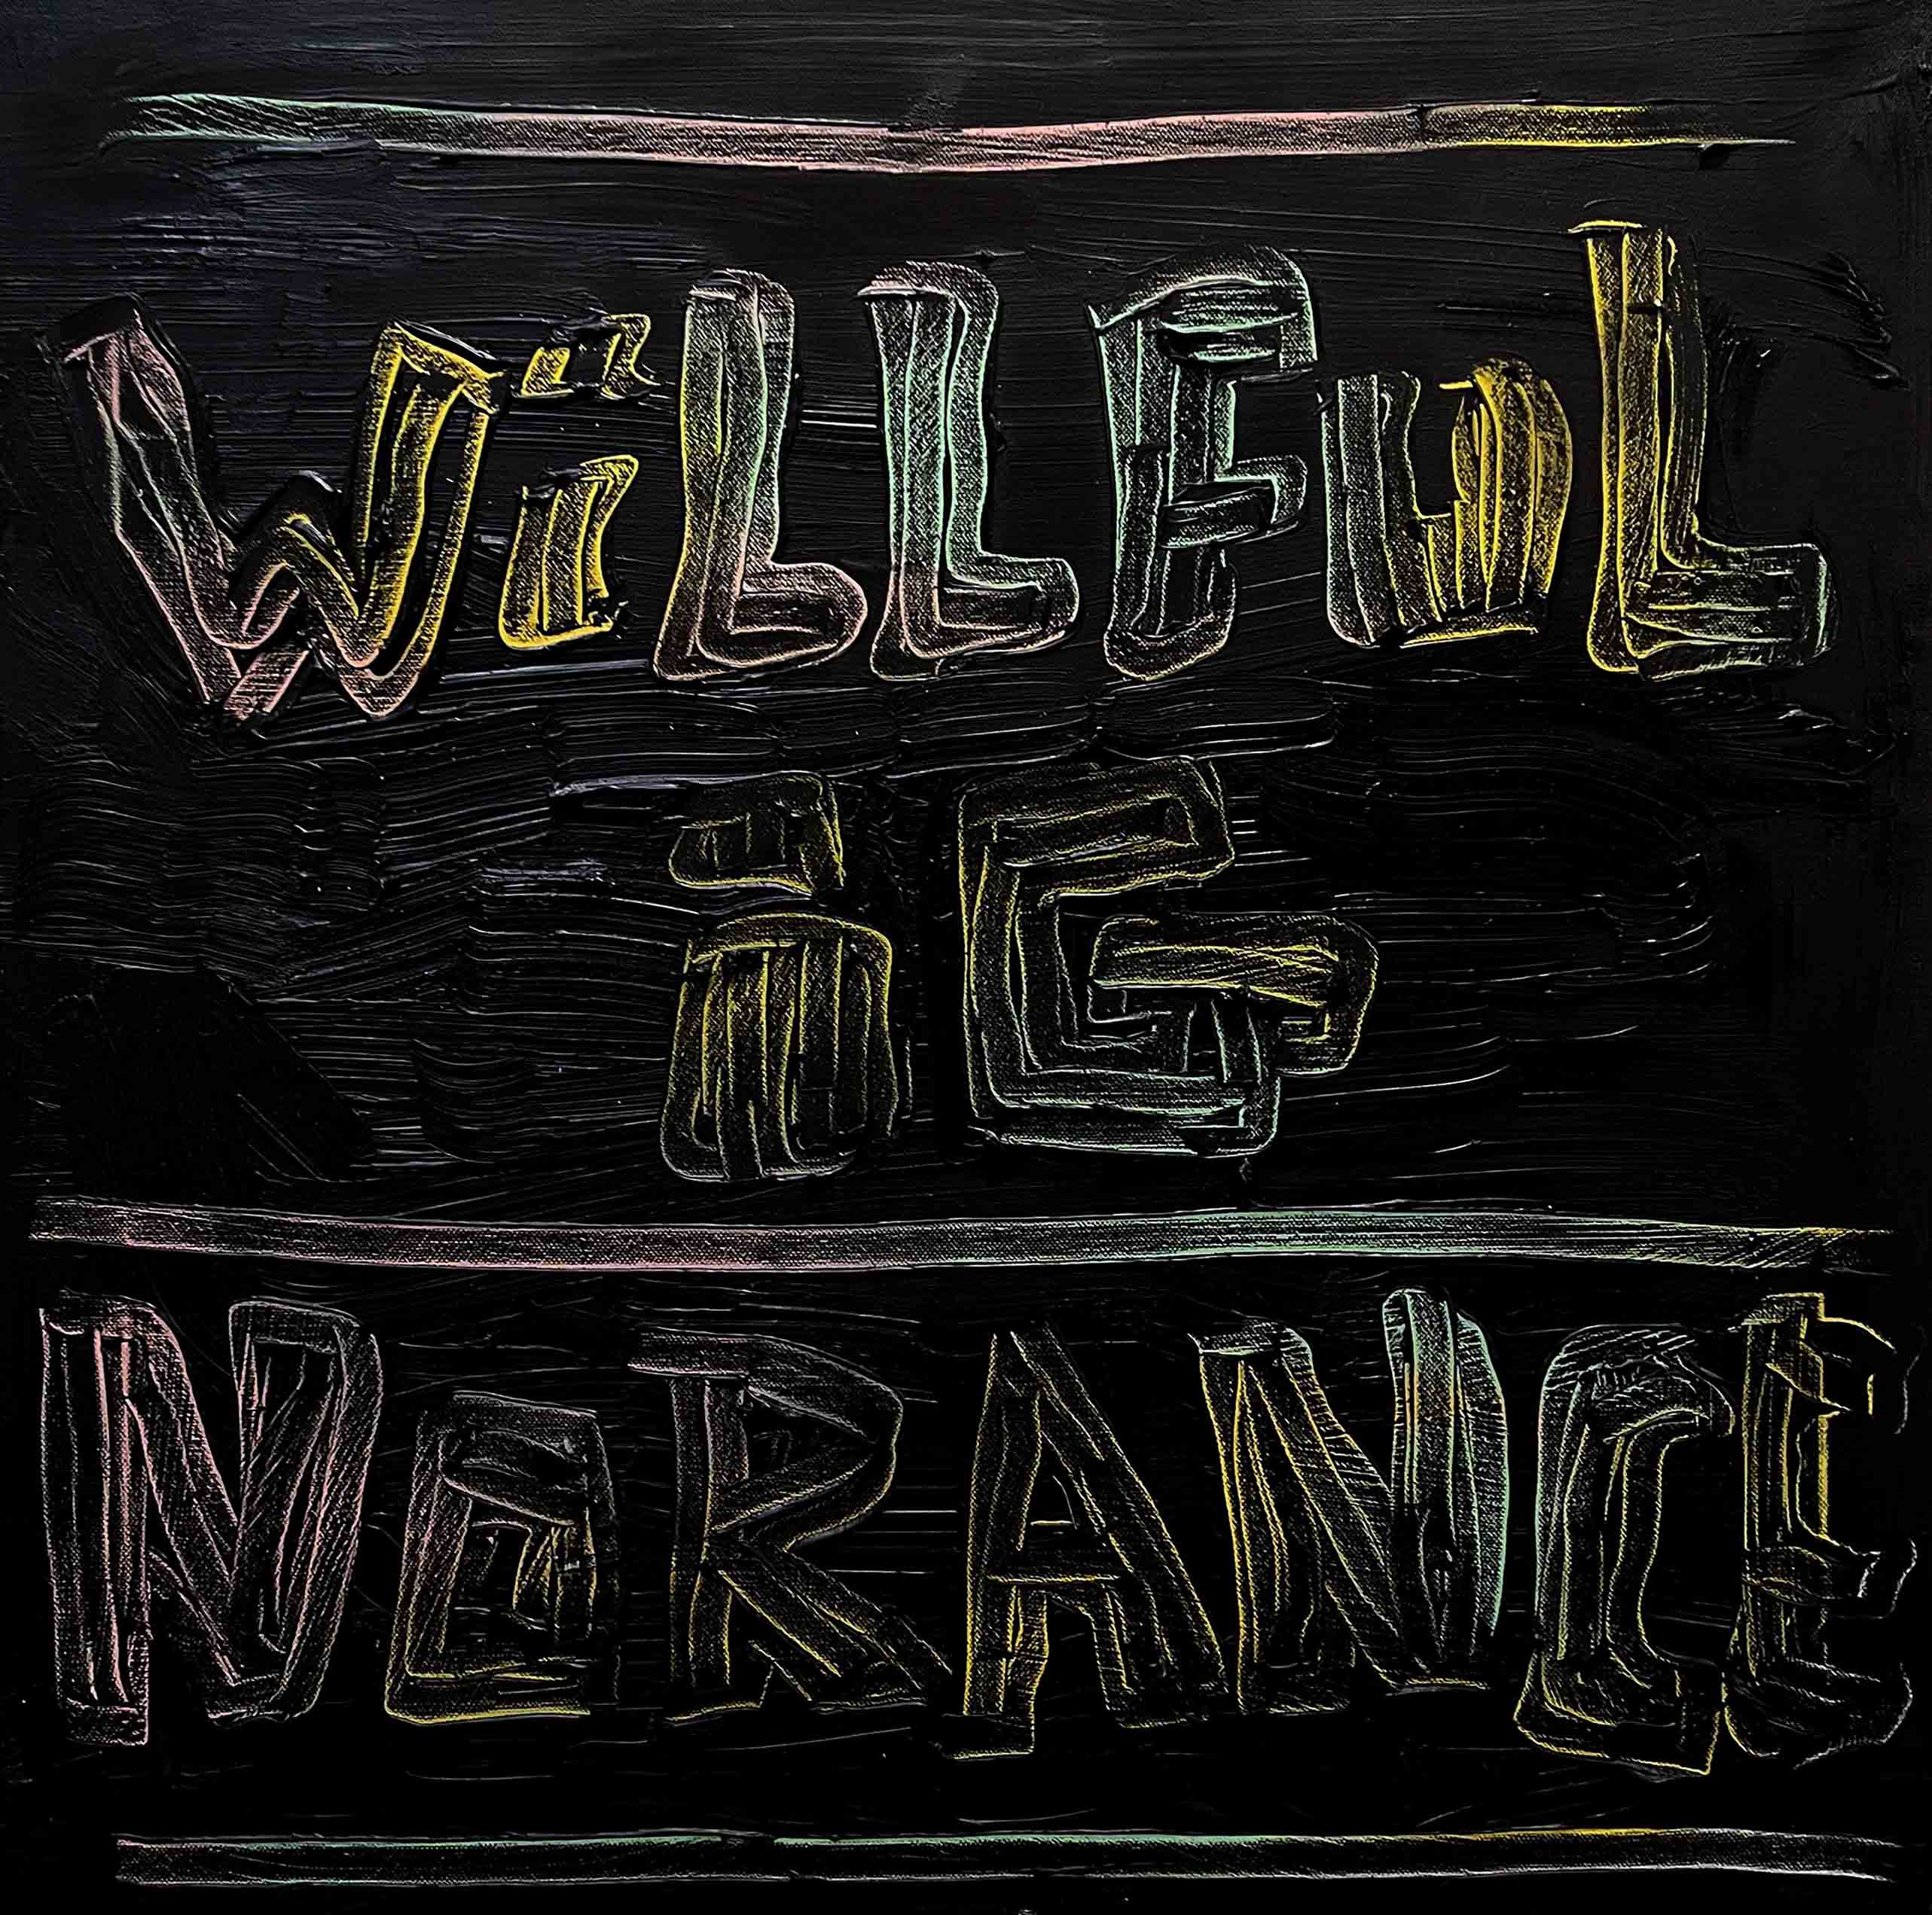 WiLLFuL
iG
NoRANCE